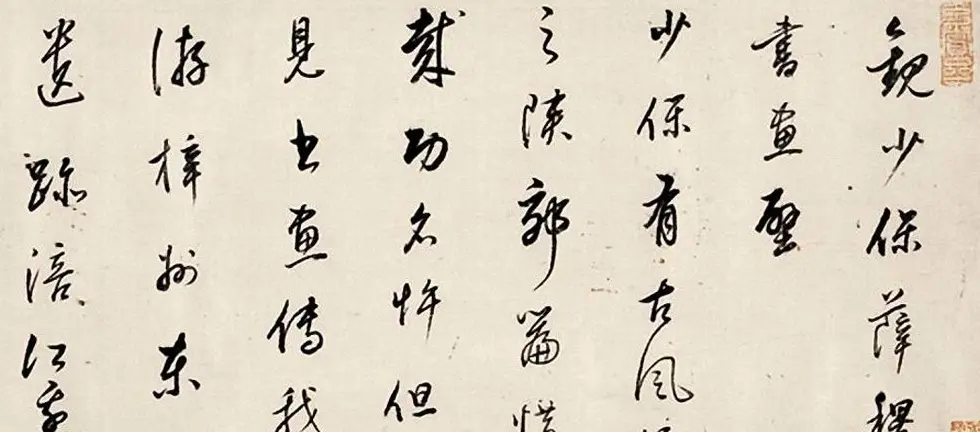 觀少保薛稷
書畫壁
少保有古風
之陝郭篇惜
哉功名忤但
見書畫傳我
游梓州東
遺跡涪江